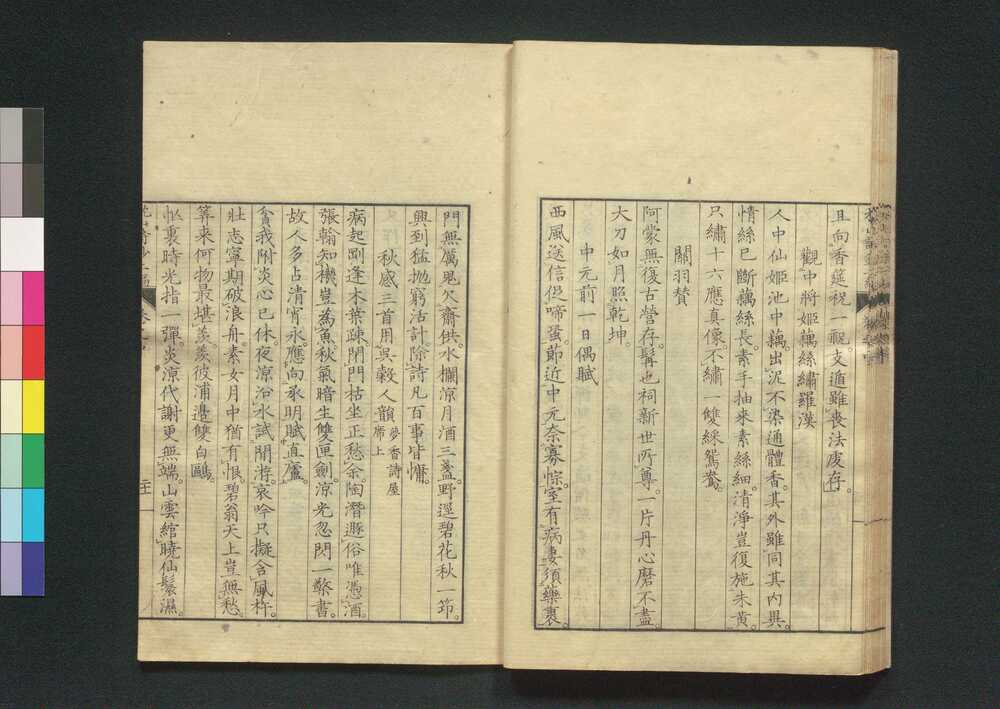 且向香筵祝一觀支遁雖喪法虔存
觀中將姬藕絲繡羅漢
人中仙姬池中藕出泥不染通體香其外雖同其內異
情絲已斷藕絲長素手抽來素絲細清淨豈復施朱黃
只繡十六應真像不繡一雙綵鴛鴦
關羽贊
阿蒙無復古營存髯也祠新世所尊一片丹心磨不盡
大刀如月照乾坤
中元前一日偶賦
西風送信促啼蛩節近中元奈寡悰室有病妻須藥裹
門無厲鬼欠齋供水欄涼月酒三盞野逕碧花秋一笻
興到猛拋窮活計除詩凡百事皆慵
秋感三首用吳穀人韻 夢香詩屋席上
病起剛逢木葉疎閉門枯坐正愁余陶潛遯俗唯憑酒
張翰知機豈為魚秋氣暗生雙匣劍涼光忽閃一檠書
故人多占清宵永應向承明賦直廬
貪我附炎心已休夜涼浴水試閑游哀吟只擬含風杵
壯志寧期破浪舟素女月中猶有恨碧翁天上豈無愁
筭來何物最堪羨羨彼浦邊雙白鷗
愁裏時光指一彈炎涼代謝更無端山雲綰曉仙鬟濕